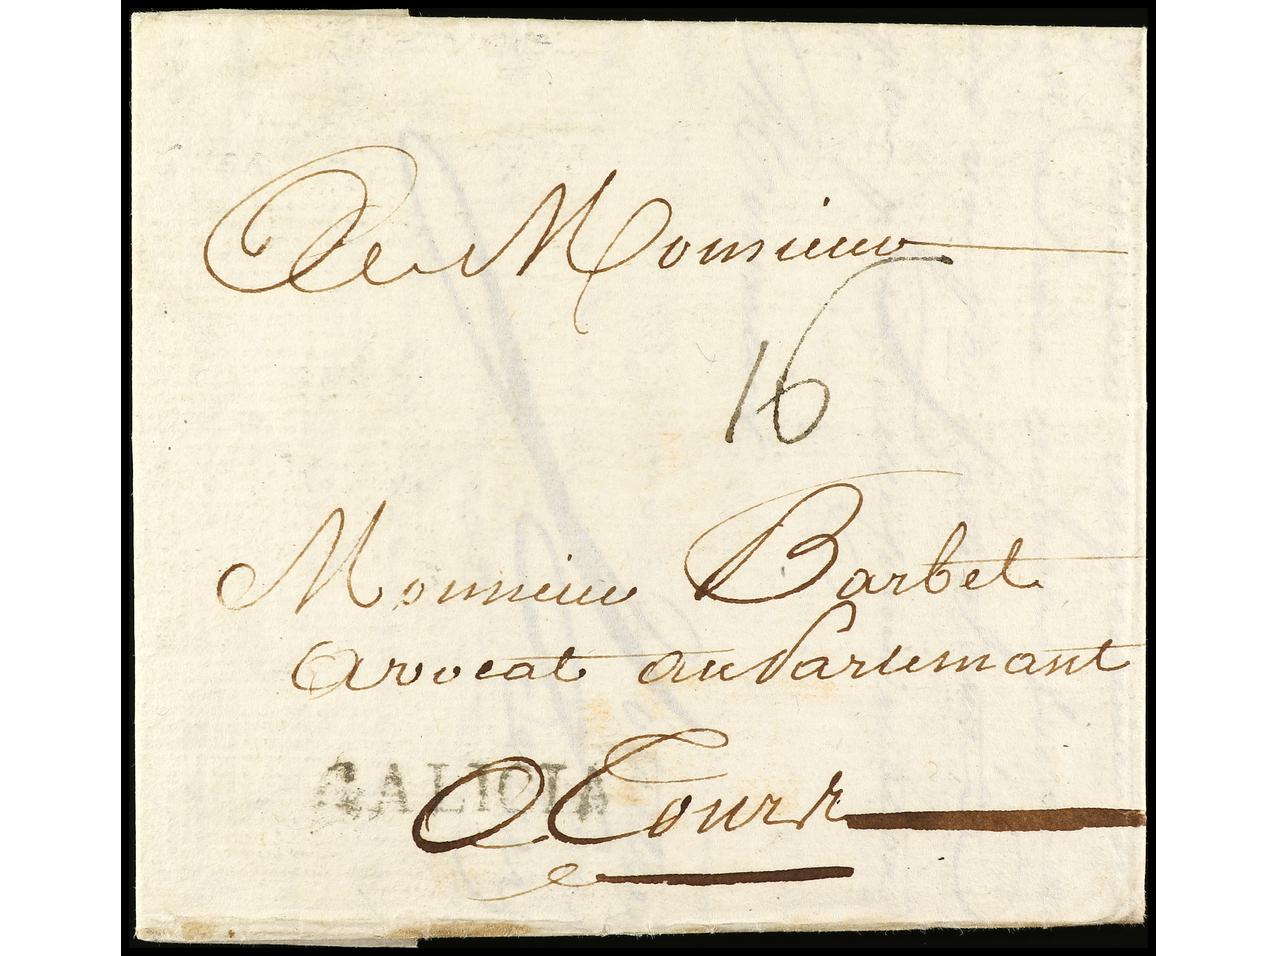 De Monsieur
16
Monsieur Barbet
avocat au Parlemant
GALICIA
A Tours